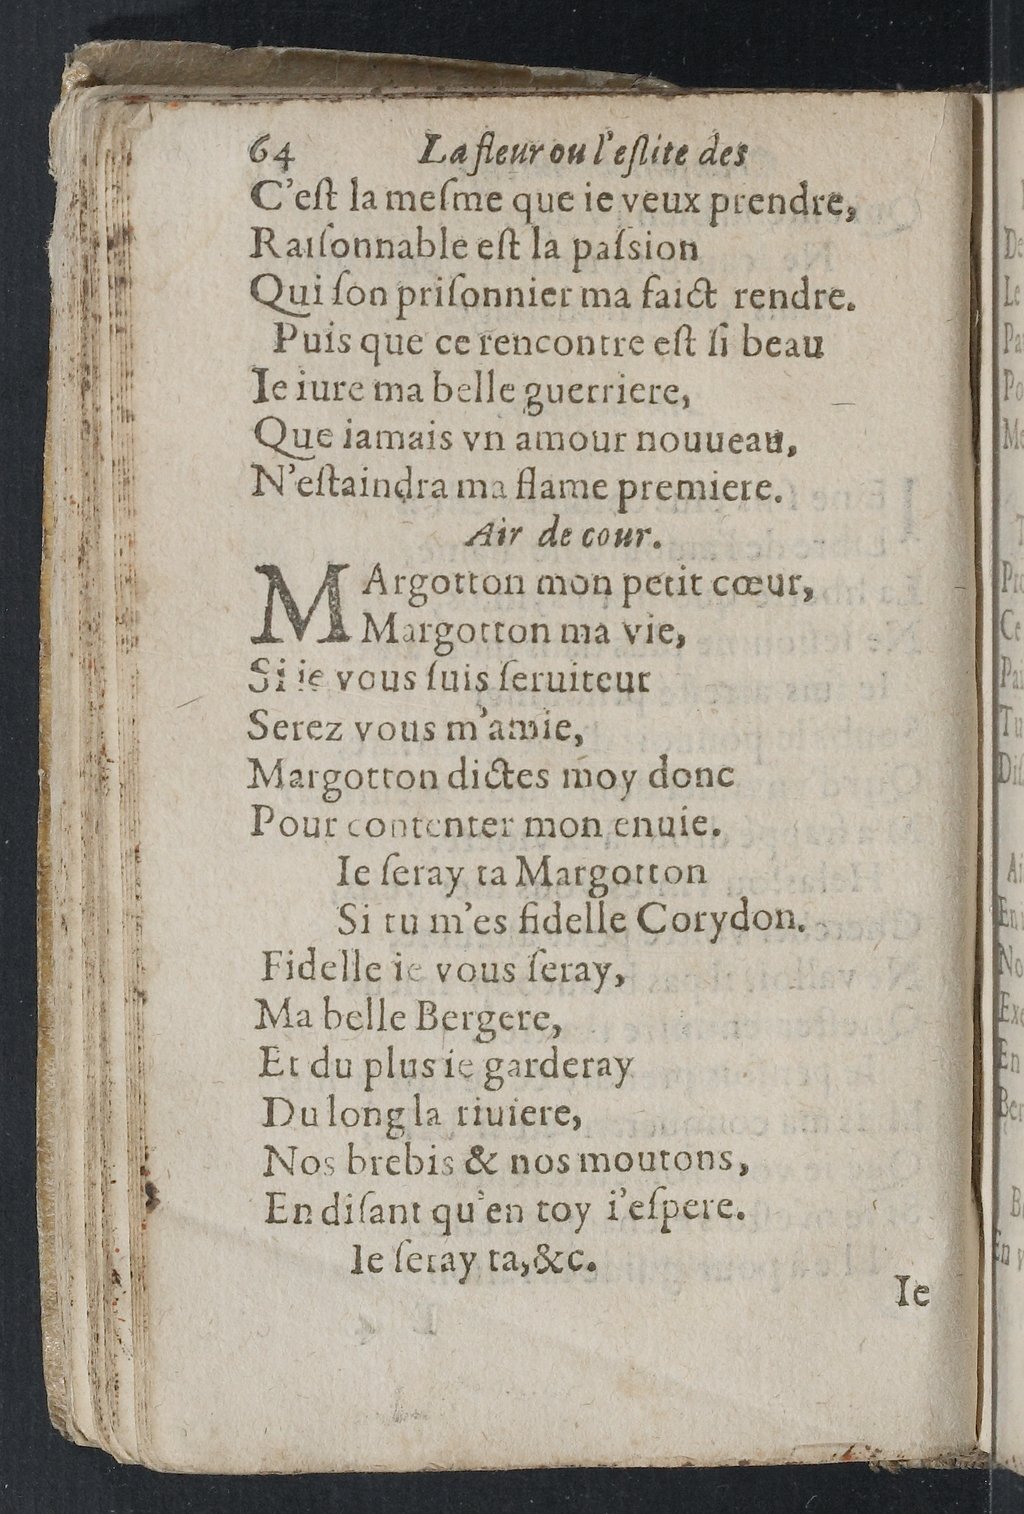 64 La fleur ou l'eslite des
C'est la meſme que ie veux prendre,
Raiſonnable eſt la paſsion
Qui ſon priſonnier ma faict rendre.
Puis que ce rencontre eſt ſi beau
Ie iure ma belle guerriere,
Que iamais vn amour nouueau,
N'eſtaindra ma flame premiere.
Air de cour.
MArgotton mon petit cœur,
Margotton ma vie,
Si ie vous ſuis ſeruiteur
Serez vous m'amie,
Margotton dictes moy donc
Pour contenter mon enuie.
Ie ſeray ta Margotton
Si tu m'es fidelle Corydon.
Fidelle ie vous ſeray,
Ma belle Bergere,
Et du plus ie garderay
Du long la riuiere,
Nos brebis & nos moutons,
En diſant qu'en toy i'eſpere.
Ie ſeray ta, &c.
Ie